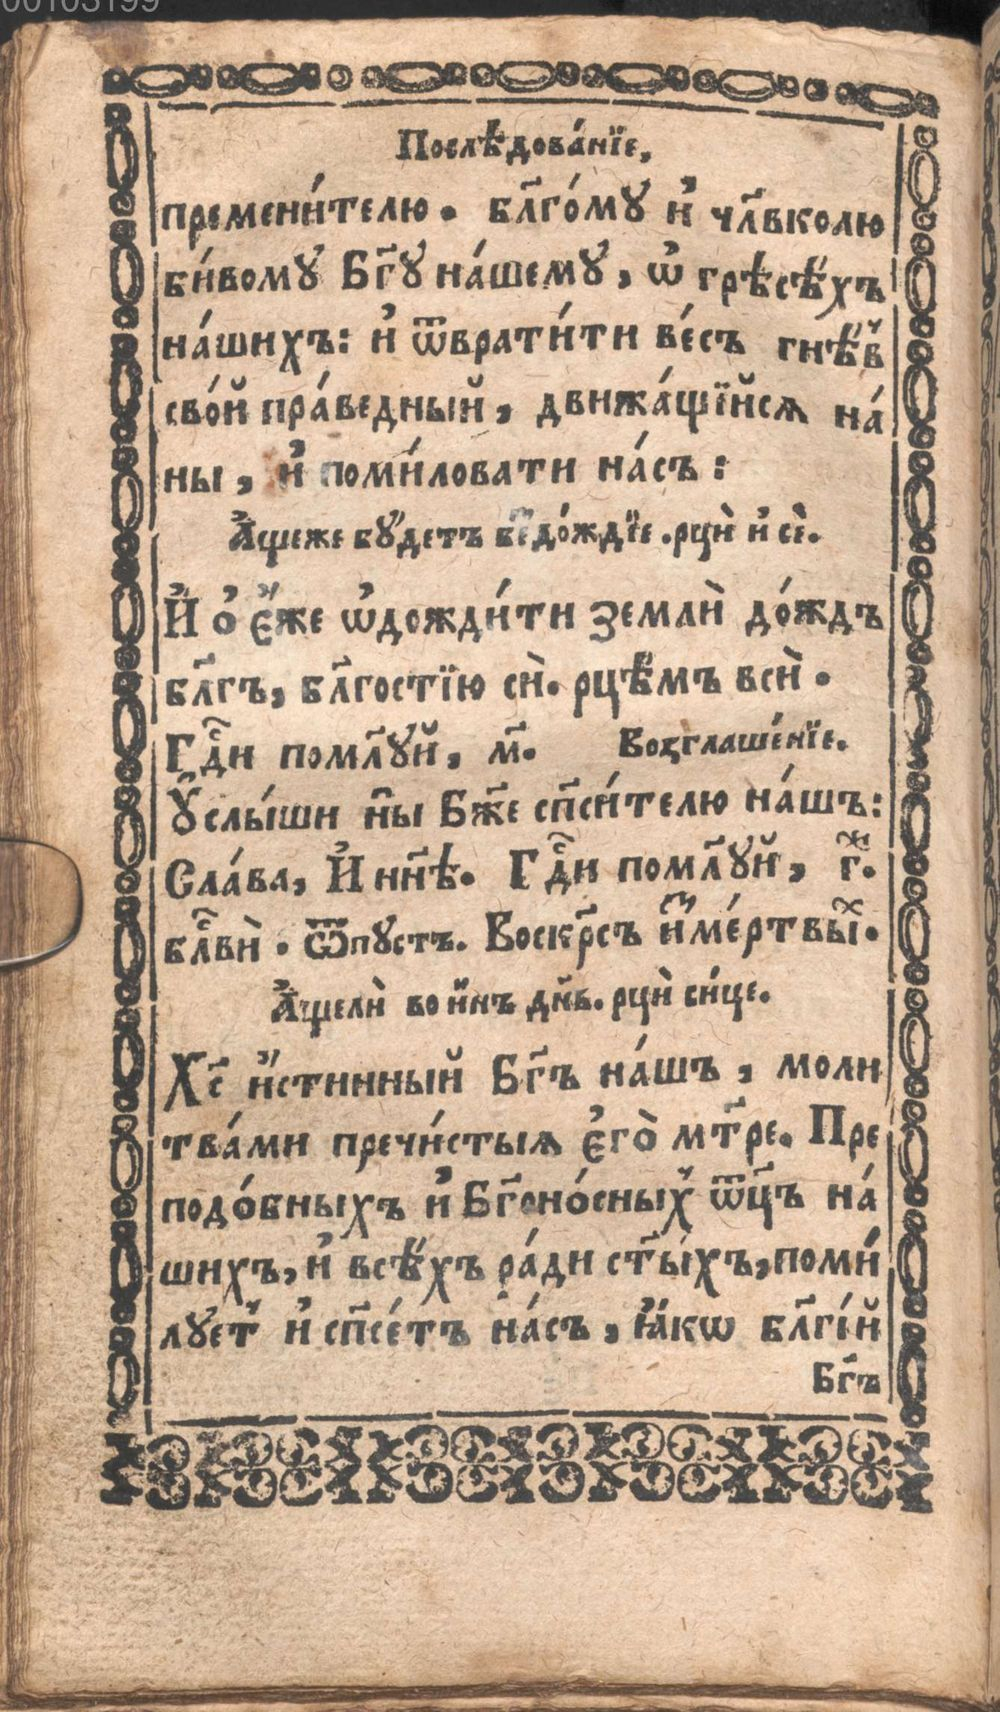 00103199
Послѣдова́нїе,
премени́телю. бл҃го́мꙋ и҆ чл҃вколю
би́вомꙋ Бг҃ꙋ на́шемꙋ, ѡ҆ грѣсѣ́хъ
на́шихъ: и҆ ѿврати́ти ве́сь гнѣ́в
сво́й пра́ведный, движа́щїйсѧ на́
ны, и҆ поми́ловати на́съ:
А҆щеже бꙋ́детъ бе҃здо́ждїе. рцѝ и҆ сѐ.
И҆ о҆ є҆́же ѡ҆дожди́ти землѝ до́ждъ
бл҃гъ, бл҃гостїю сѝ. рце́мъ всѝ.
Гд҇и помл҃ꙋй, м҃. Возглаше́нїе.
Оу҆слы́ши ны̑ Бж҃е сп҃си́телю на́шъ:
Сла́ва, И҆ нн҃ѣ. Гд҇и помл҃ꙋй, г҃ж.
бл҇вѝ. Ѿпꙋстъ. Воскр҃съ и҆зме́ртвых.
А҆щелѝ во и҆́нъ дн҃ь. рцѝ си́це.
Хс҃ и҆́стинный Бг҃ъ на́шъ, моли
тва́ми пречи́стыѧ є҆гѡ̀ мт҃ре. Пре
подо́бныхъ и҆ Бг҃оно́сных ѿц҃ъ на́
шихъ, и҆ всѣ́хъ ра́ди ст҃ы́хъ, поми́
лꙋет и҆ сп҃се́тъ на́съ, ꙗ҆́кѡ бл҃гі́й
Бг҃ъ